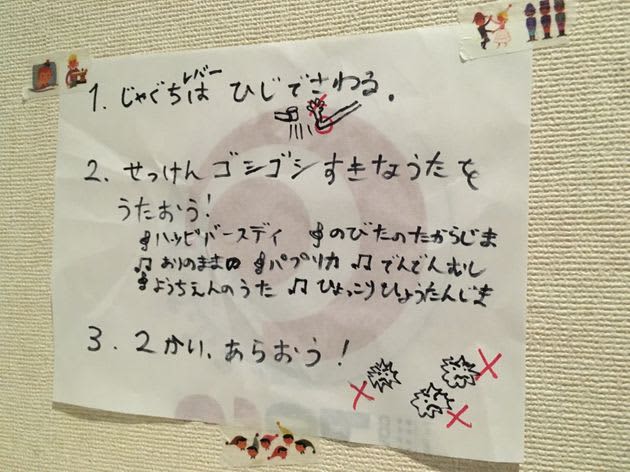 1. じゃぐちは ひじでさわる.
レバー
2. せっけん ゴシゴシ すきなうたを
うたおう!
ハッピバースデイ のびたのたからじま
♫ ありのままの パプリカ ♫ でんでんむし
ようちえんのうた ♫ ひょっこりひょうたんじま
3. 2かい、あらおう!